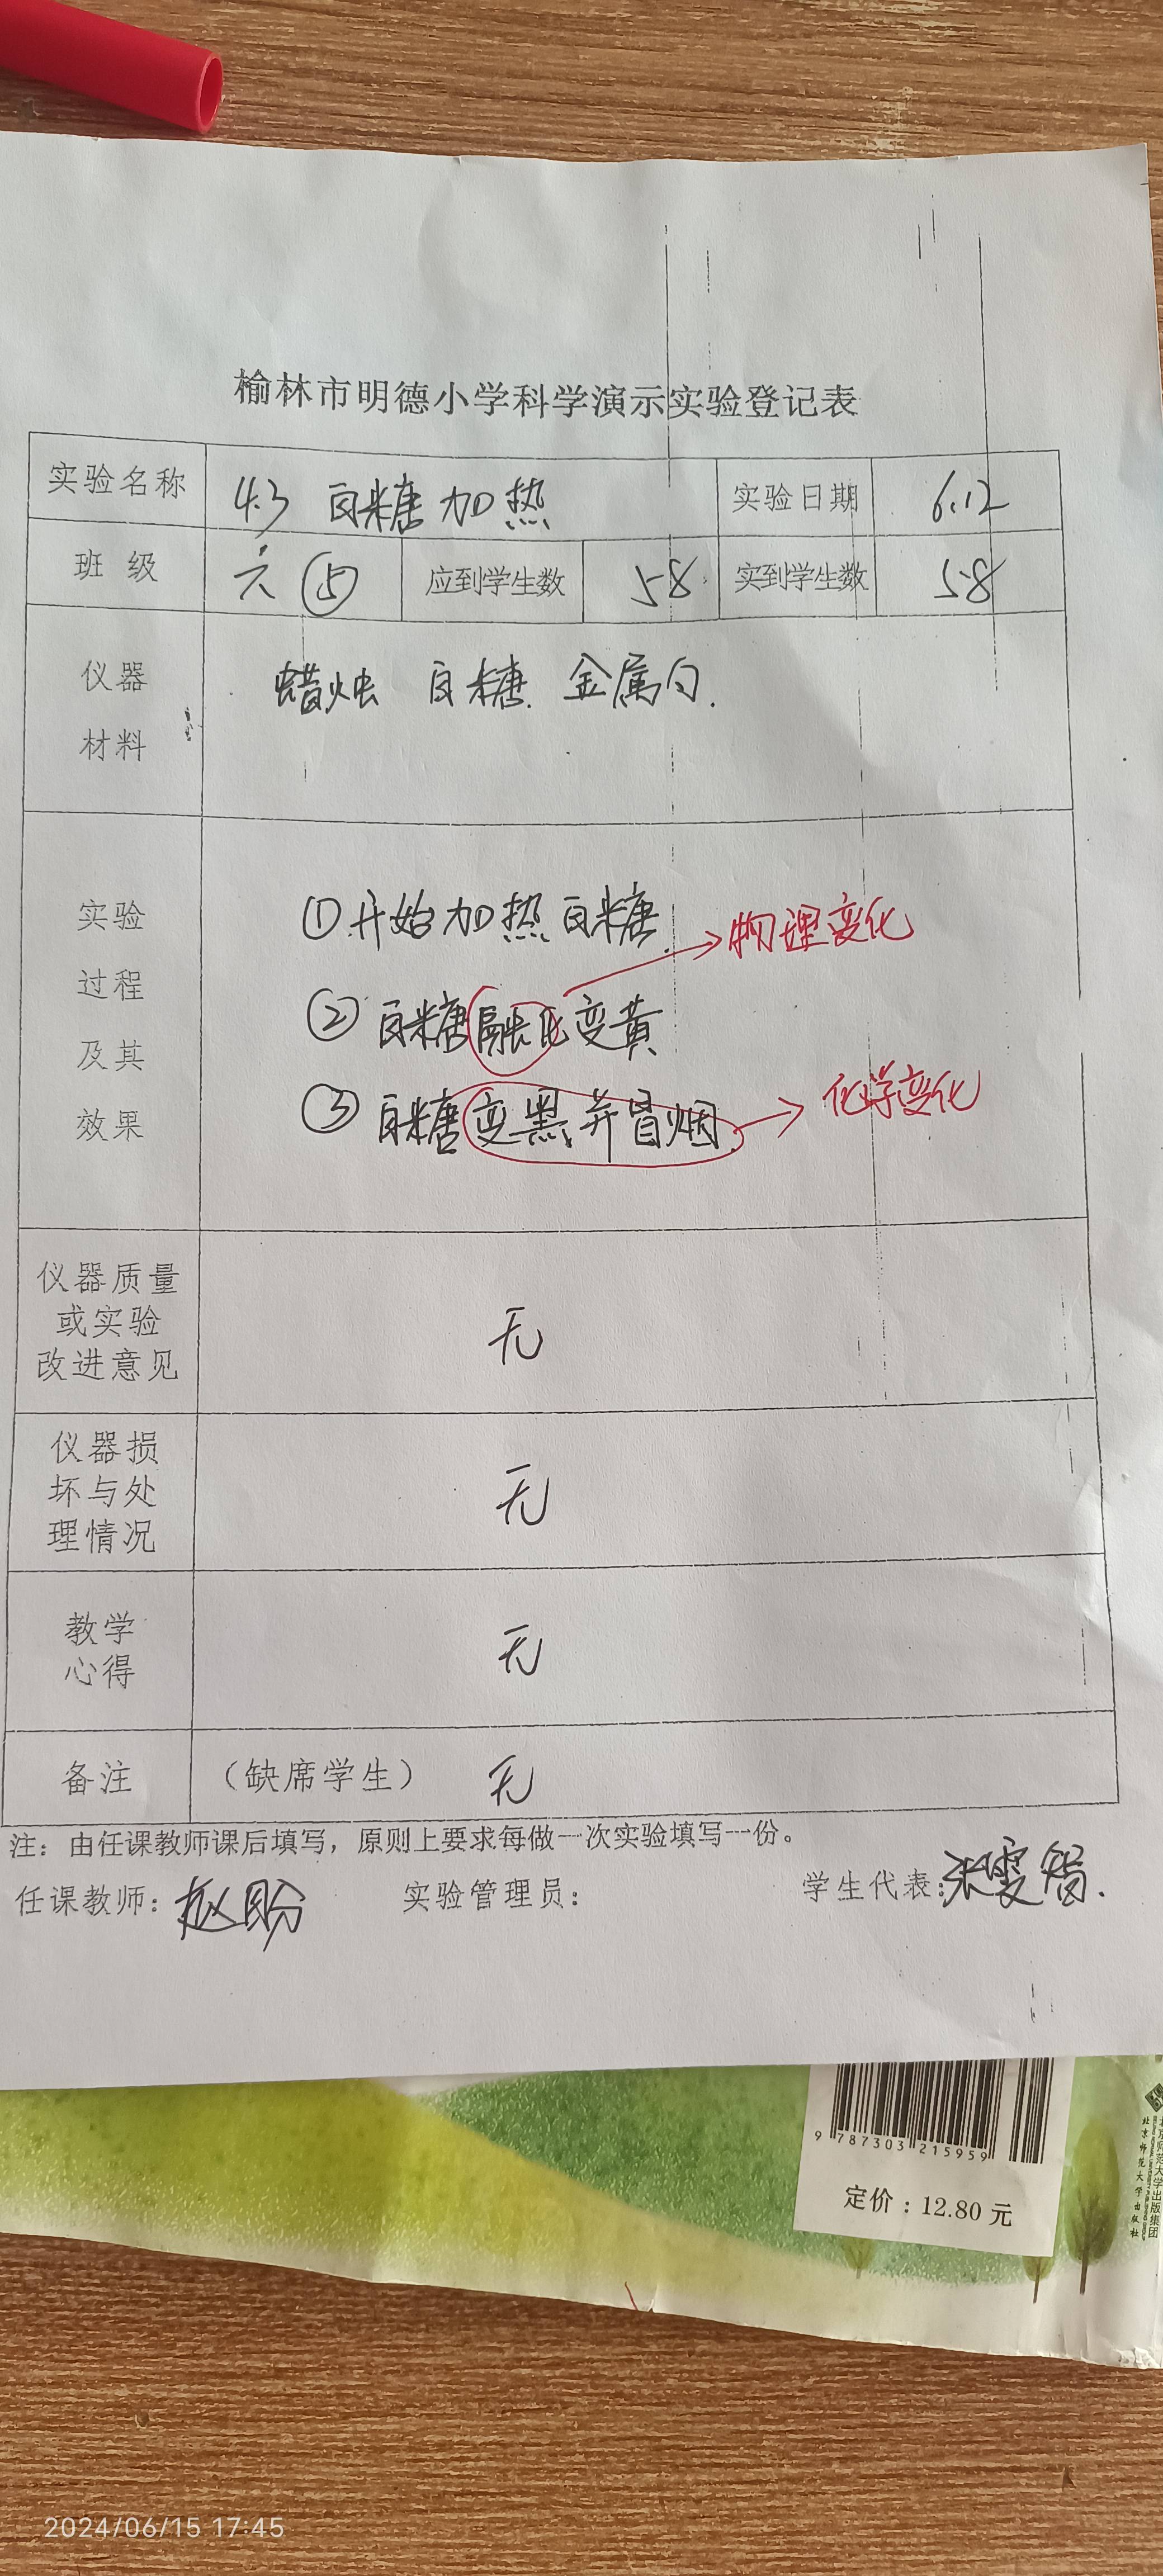 榆林市明德小学科学演示实验登记表
实验名称 4.3 白糖加热 实验日期 6.12
班 级 六⑤ 应到学生数 58 实到学生数 58
仪器
材料
蜡烛 白糖 金属勺.
实验
过程
及其
效果
①开始加热白糖.
物理变化
②白糖融化变黄
③白糖变黑并冒烟.
化学变化
仪器质量
或实验
改进意见
无
仪器损
坏与处
理情况
无
教学
心得
无
备注 （缺席学生） 无
注：由任课教师课后填写，原则上要求每做一次实验填写一份。
任课教师：赵盼 实验管理员： 学生代表：张雯
9 787303 215959
定价：12.80 元
北京师范大学出版集团
北京师范大学出版社
2024/06/15 17:45